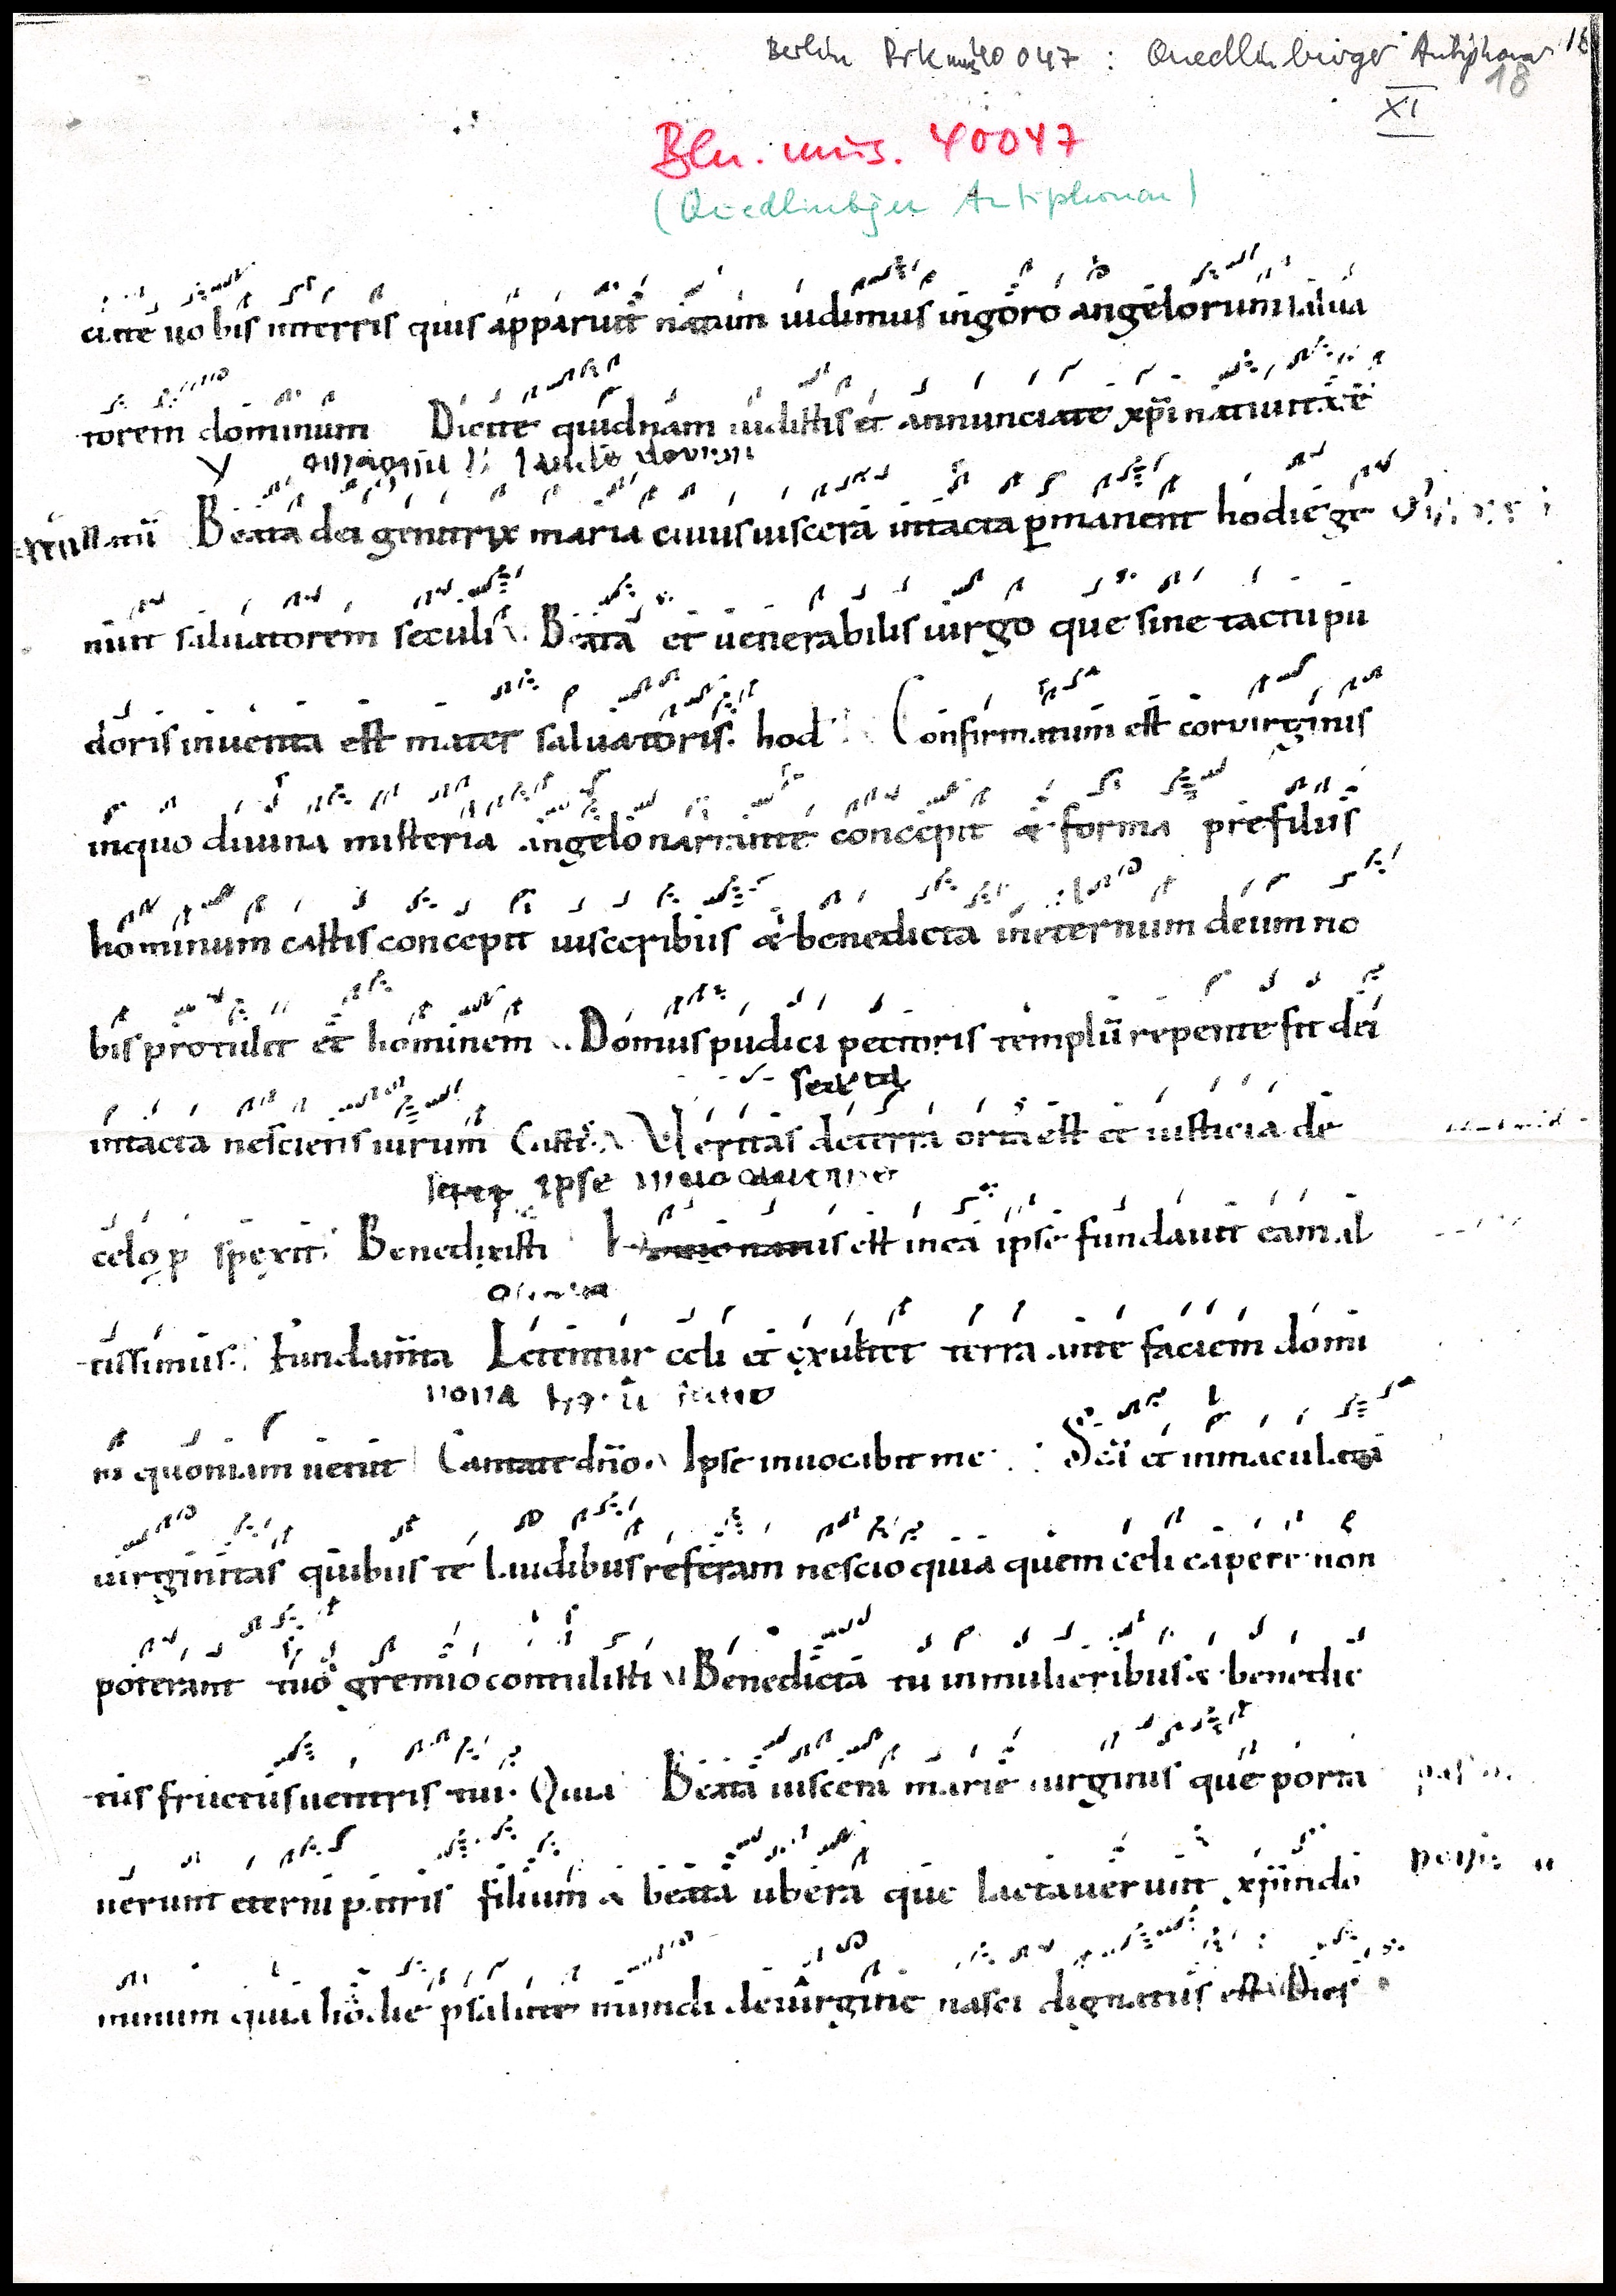 Berlin Prk mus 40 047 : Quedlinburger Antiphonar 16
18
XI
Bln. mus. 40047
(Quedlinbger Antiphonar)
ciate nobis interris quis apparuit natum uidimus ingoro angelorum salua
torem dominum Dicite quidnam uidistis et annunciate xpi natiuitate
Beata dei genitrix maria cuius uiscera intacta pmanent hodie ge
nuit saluatorem seculi Beata et uenerabilis uirgo que sine tactu pu
doris inuenta est mater saluatoris. hod Confirmatum est cor virginis
inquo diuina misteria angelo narrante concepit & forma pre filiis
hominum castis concepit uisceribus & benedicta ineternum deum no
bis protulit et hominem Domus pudici pectoris templu repente fit dei
intacta nesciens uirum Casti. Veritas deterra orta est et iusticia de
celo p spexit Benedixisti natus est inea ipse fundauit eam al
tissimus. Fundamta Letentur celi et exultet terra ante faciem domi
nona
ni quoniam uenit Cantate dno. Ipse inuocabit me Sca et inmaculata
uirginitas quibus te laudibus referam nescio quia quem celi capere non
poterant tuo gremio contulisti Benedicta tu inmulieribus & benedic
tus fructus uentris tui. Quia Beata uiscera marie uirginis que porta
uerunt eterni patris filium & beata ubera que lactauerunt xpm do
minum quia hodie psalute mundi deuirgine nasci dignatus est Dies